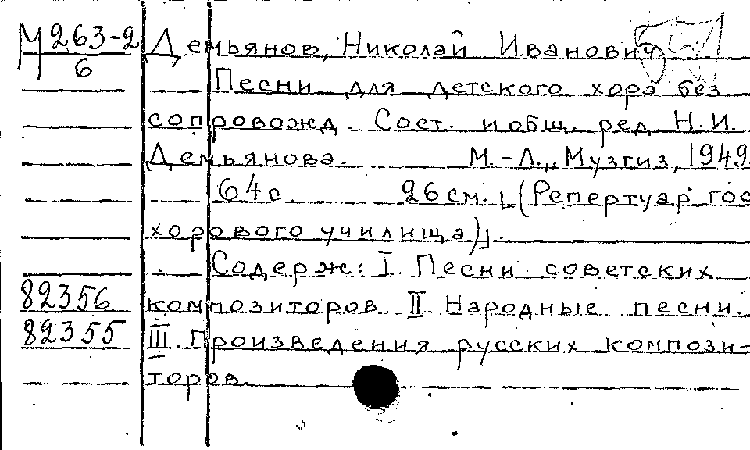 М 263-2
6
Демьянов, Николай Иванович
Песни для детского хора без
сопровожд. Сост. и общ. ред. Н.И.
Демьянова. М.-Л., Музгиз, 1949
64 с. 26 см. (Репертуар гос
хорового училища).
Содерж: I. Песни советских
82356 композиторов. II Народные песни.
82355 III. Произведения русских компози-
торов.